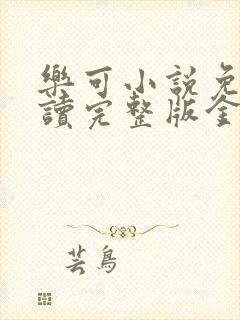 樂可小說免
讀完整版全
芸鳥